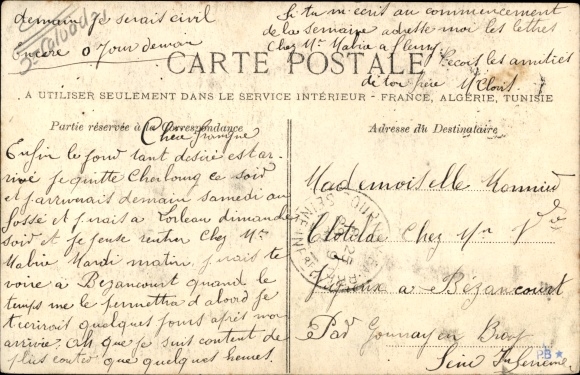 demain je serais civil
Encore 0 Jour demain
Si tu m'ecrit au commencement
de la semaine adresse moi les lettres
Chez Mr Mabire a Fleury
Recois les amitiés
de ton frère
CARTE POSTALE
A UTILISER SEULEMENT DANS LE SERVICE INTÉRIEUR - FRANCE, ALGÉRIE, TUNISIE
Partie réservée à la Correspondance
Adresse du Destinataire
Chere
Enfin le jour tant desiré est ar-
rivé je quitte Cherbourg ce soir
et j'arriverais demain samedi au
Fossé et j'irais a Lorleau dimanche
soir et je pense rentrer Chez Mr
Mabire Mardi matin j'irais te
voire a Bézancourt quand le
temps me le permettra d'abord je
t'ecrirait quelques jours après mon
arrivée. Ah que je suis content de
plus conter que quelques heures.
Mademoiselle Monnier
Clotilde Chez Mr Vve
a Bézancourt
Par Gournay en Bray
Seine Inferieure
PB